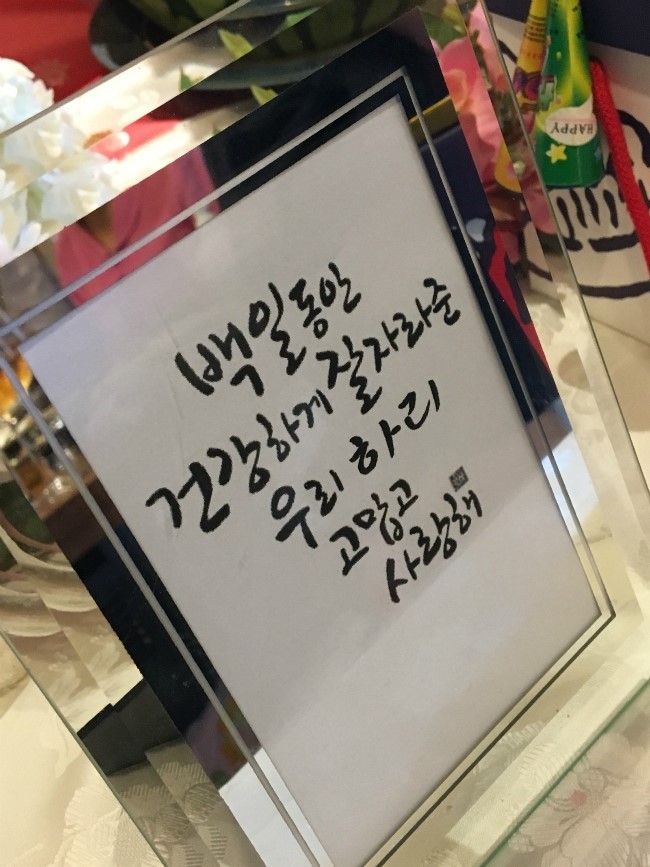 백일동안
건강하게 잘자라준
우리 하리
고맙고
사랑해
HAPPY